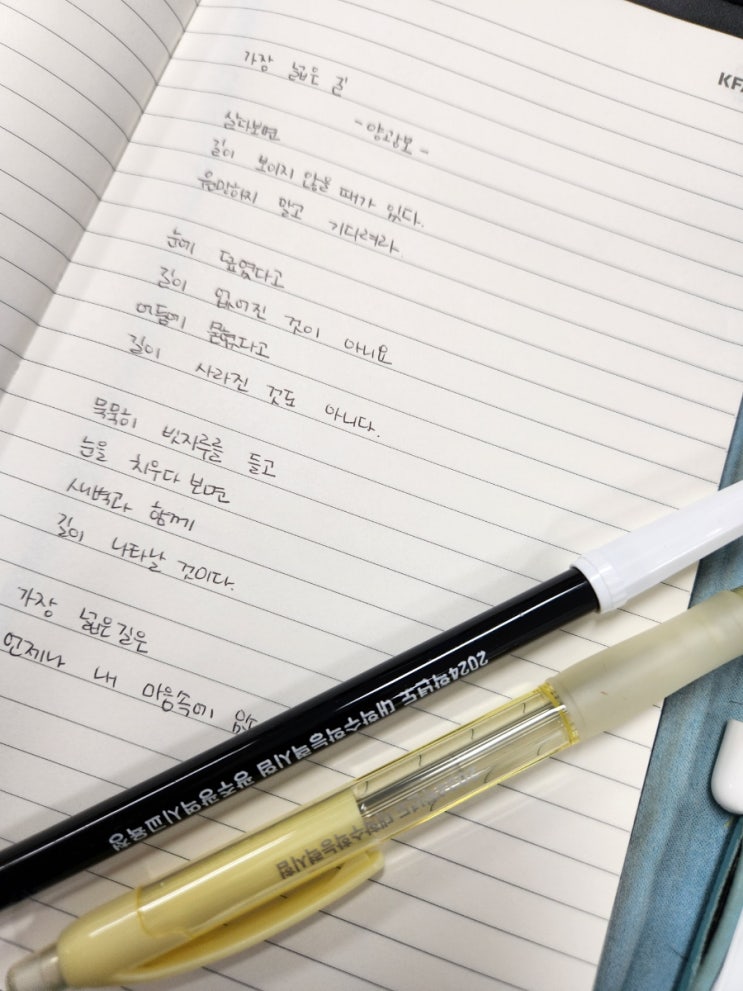 KF
가장 넓은 길
- 양광모 -
살다보면
길이 보이지 않을 때가 있다.
원망하지 말고 기다려라.
눈에 덮였다고
길이 없어진 것이 아니요
어둠에 묻혔다고
길이 사라진 것도 아니다.
묵묵히 빗자루를 들고
눈을 치우다 보면
새벽과 함께
길이 나타날 것이다.
가장 넓은 길은
언제나 내 마음속에 있다
2024학년도 대학수학능력시험 광주광역시교육청
대학수학능력시험